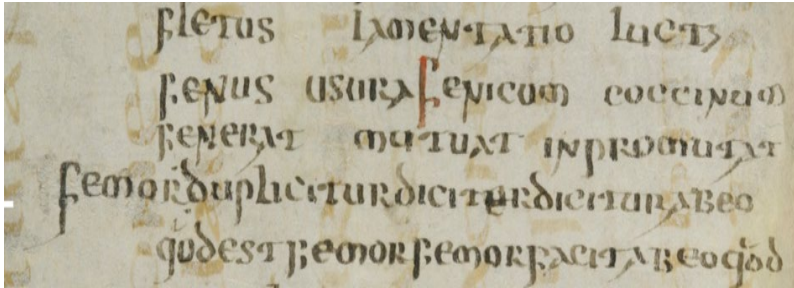 fletus lamentatio luctꝫ
fenus usura fenicum coccinum
fenerat mutuat inpromutat
femor dupliciturdiciturdiciturabeo
qđdest femor femor facit abeo qđd